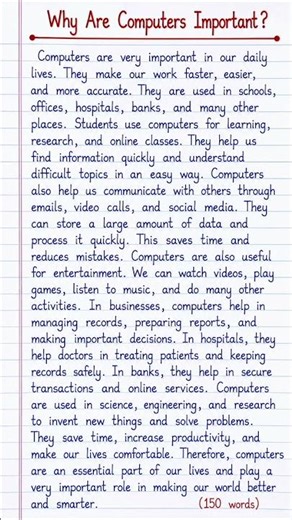 Why Are Computers Important?
Computers are very important in our daily
lives. They make our work faster, easier,
and more accurate. They are used in schools,
offices, hospitals, banks, and many other
places. Students use computers for learning,
research, and online classes. They help us
find information quickly and understand
difficult topics in an easy way. Computers
also help us communicate with others through
emails, video calls, and social media. They
can store a large amount of data and
process it quickly. This saves time and
reduces mistakes. Computers are also useful
for entertainment. We can watch videos, play
games, listen to music, and do many other
activities. In businesses, computers help in
managing records, preparing reports, and
making important decisions. In hospitals, they
help doctors in treating patients and keeping
records safely. In banks, they help in secure
transactions and online services. Computers
are used in science, engineering, and research
to invent new things and solve problems.
They save time, increase productivity, and
make our lives comfortable. Therefore, computers
are an essential part of our lives and play a
very important role in making our world better
and smarter. (150 words)